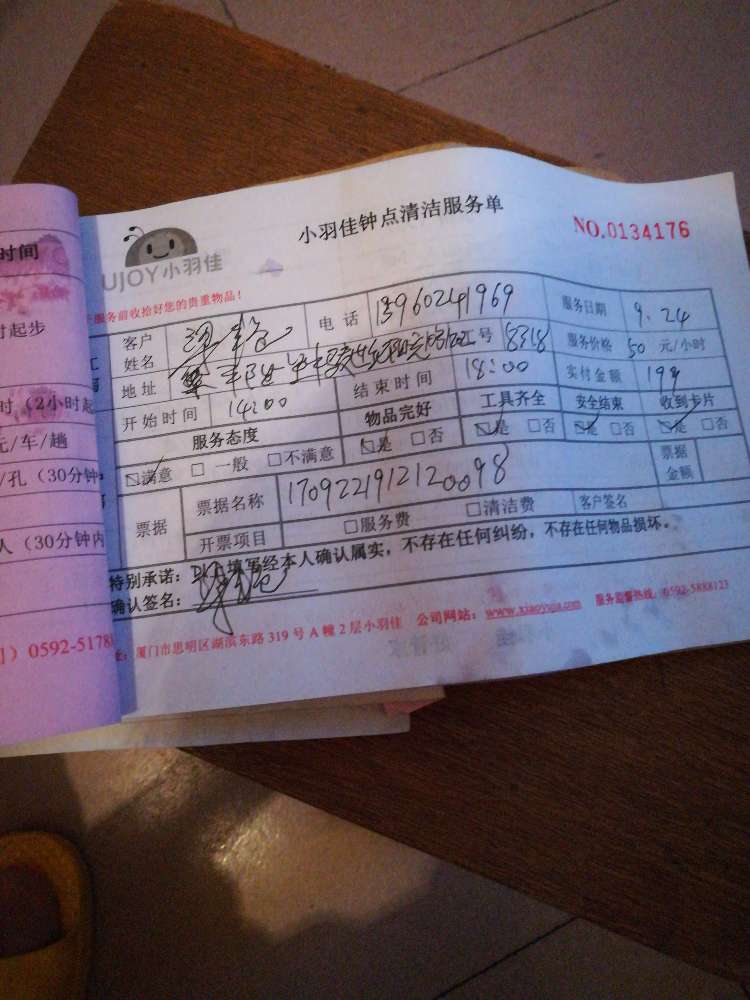 时间
时起步
时（2小时起
元/车/趟
/孔（30分钟
人（30分钟内
）0592-5178
小羽佳钟点清洁服务单
NO.0134176
UJOY小羽佳
服务前收拾好您的贵重物品！
客户姓名 电话 13960241969 服务日期 9.24
地址 工号 8318 服务价格 50 元/小时
开始时间 14:00 结束时间 18:00 实付金额 199
服务态度 物品完好 工具齐全 安全结束 收到卡片
满意 一般 不满意 是 否 是 否 是 否 是 否
票据 票据名称 1709221912120098 票据金额
开票项目 服务费 清洁费 客户签名
特别承诺：以上填写经本人确认属实，不存在任何纠纷，不存在任何物品损坏。
确认签名：
厦门市思明区湖滨东路319号A幢2层小羽佳 公司网站：www.xiaoyujia.com 服务监督热线：0592-5888123